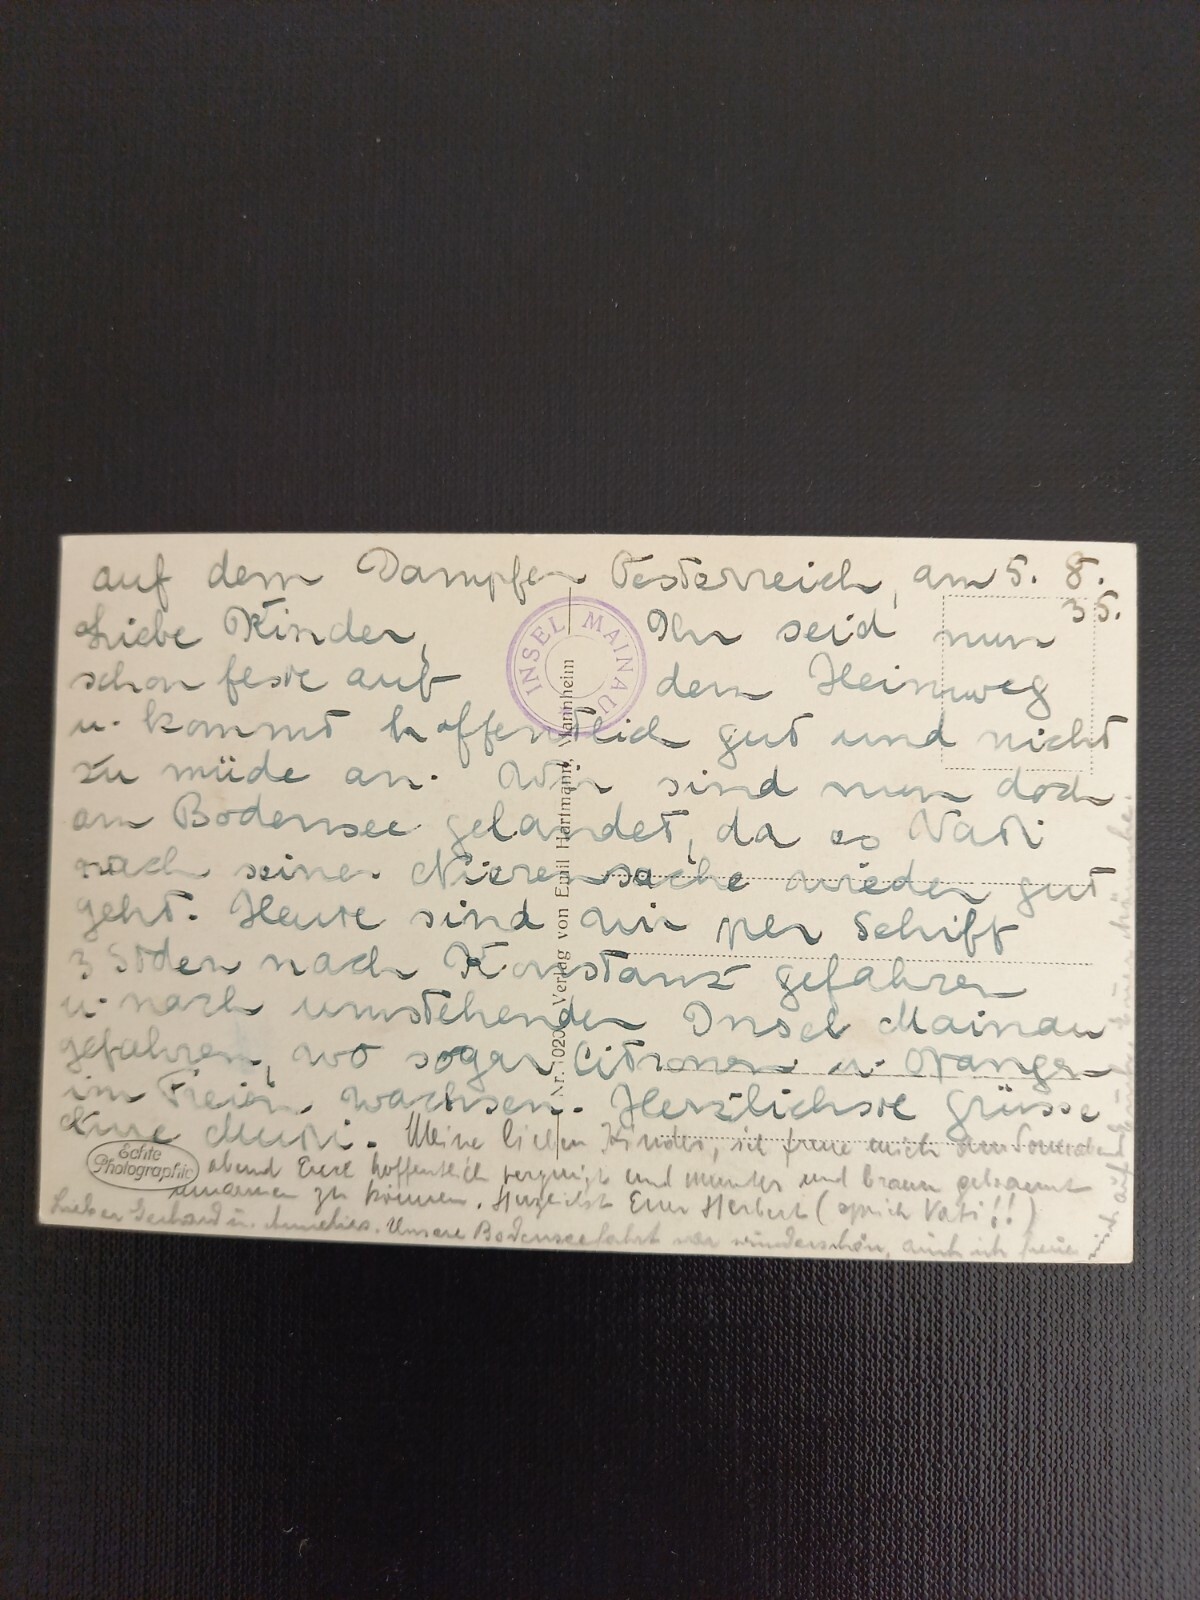 auf dem Dampfer Oesterreich, am 5. 8.
35.
Liebe Kinder, Ihr seid nun
schon feste auf dem Heimweg
u. kommt hoffentlich gut und nicht
zu müde an. Wir sind nun doch
am Bodensee gelandet, da es Vati
nach seiner Nierensache wieder gut
geht. Heute sind wir per Schiff
3 Stden nach Konstanz gefahren
u. nach umstehender Insel Mainau
gefahren, wo sogar Citronen u. Orangen
im Freien wachsen. Herzlichste Grüsse
Eure Mutti. Meine lieben Kinder, ich freue mich am Sonnabend
abend Euch hoffentlich vergnügt und munter und braun gebrannt
umarmen zu können. Herzlichst Euer Herbert (sprich Vati!!)
Lieber Gerhard u. Annelies. Unsere Bodenseefahrt war wunderschön, auch ich freue
mich auf
INSEL MAINAU
Nr. 1020 Verlag von Emil Hartmann, Mannheim
Echte
Photographie